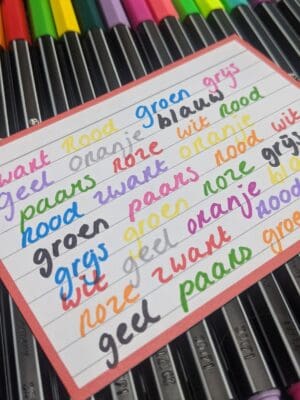 wart rood groen grijs
geel oranje blauw
paars roze wit rood
rood zwart oranje
groen paars rood wit
grijs groen roze grijs
wit geel oranje bla
roze zwart rood
geel paars groe